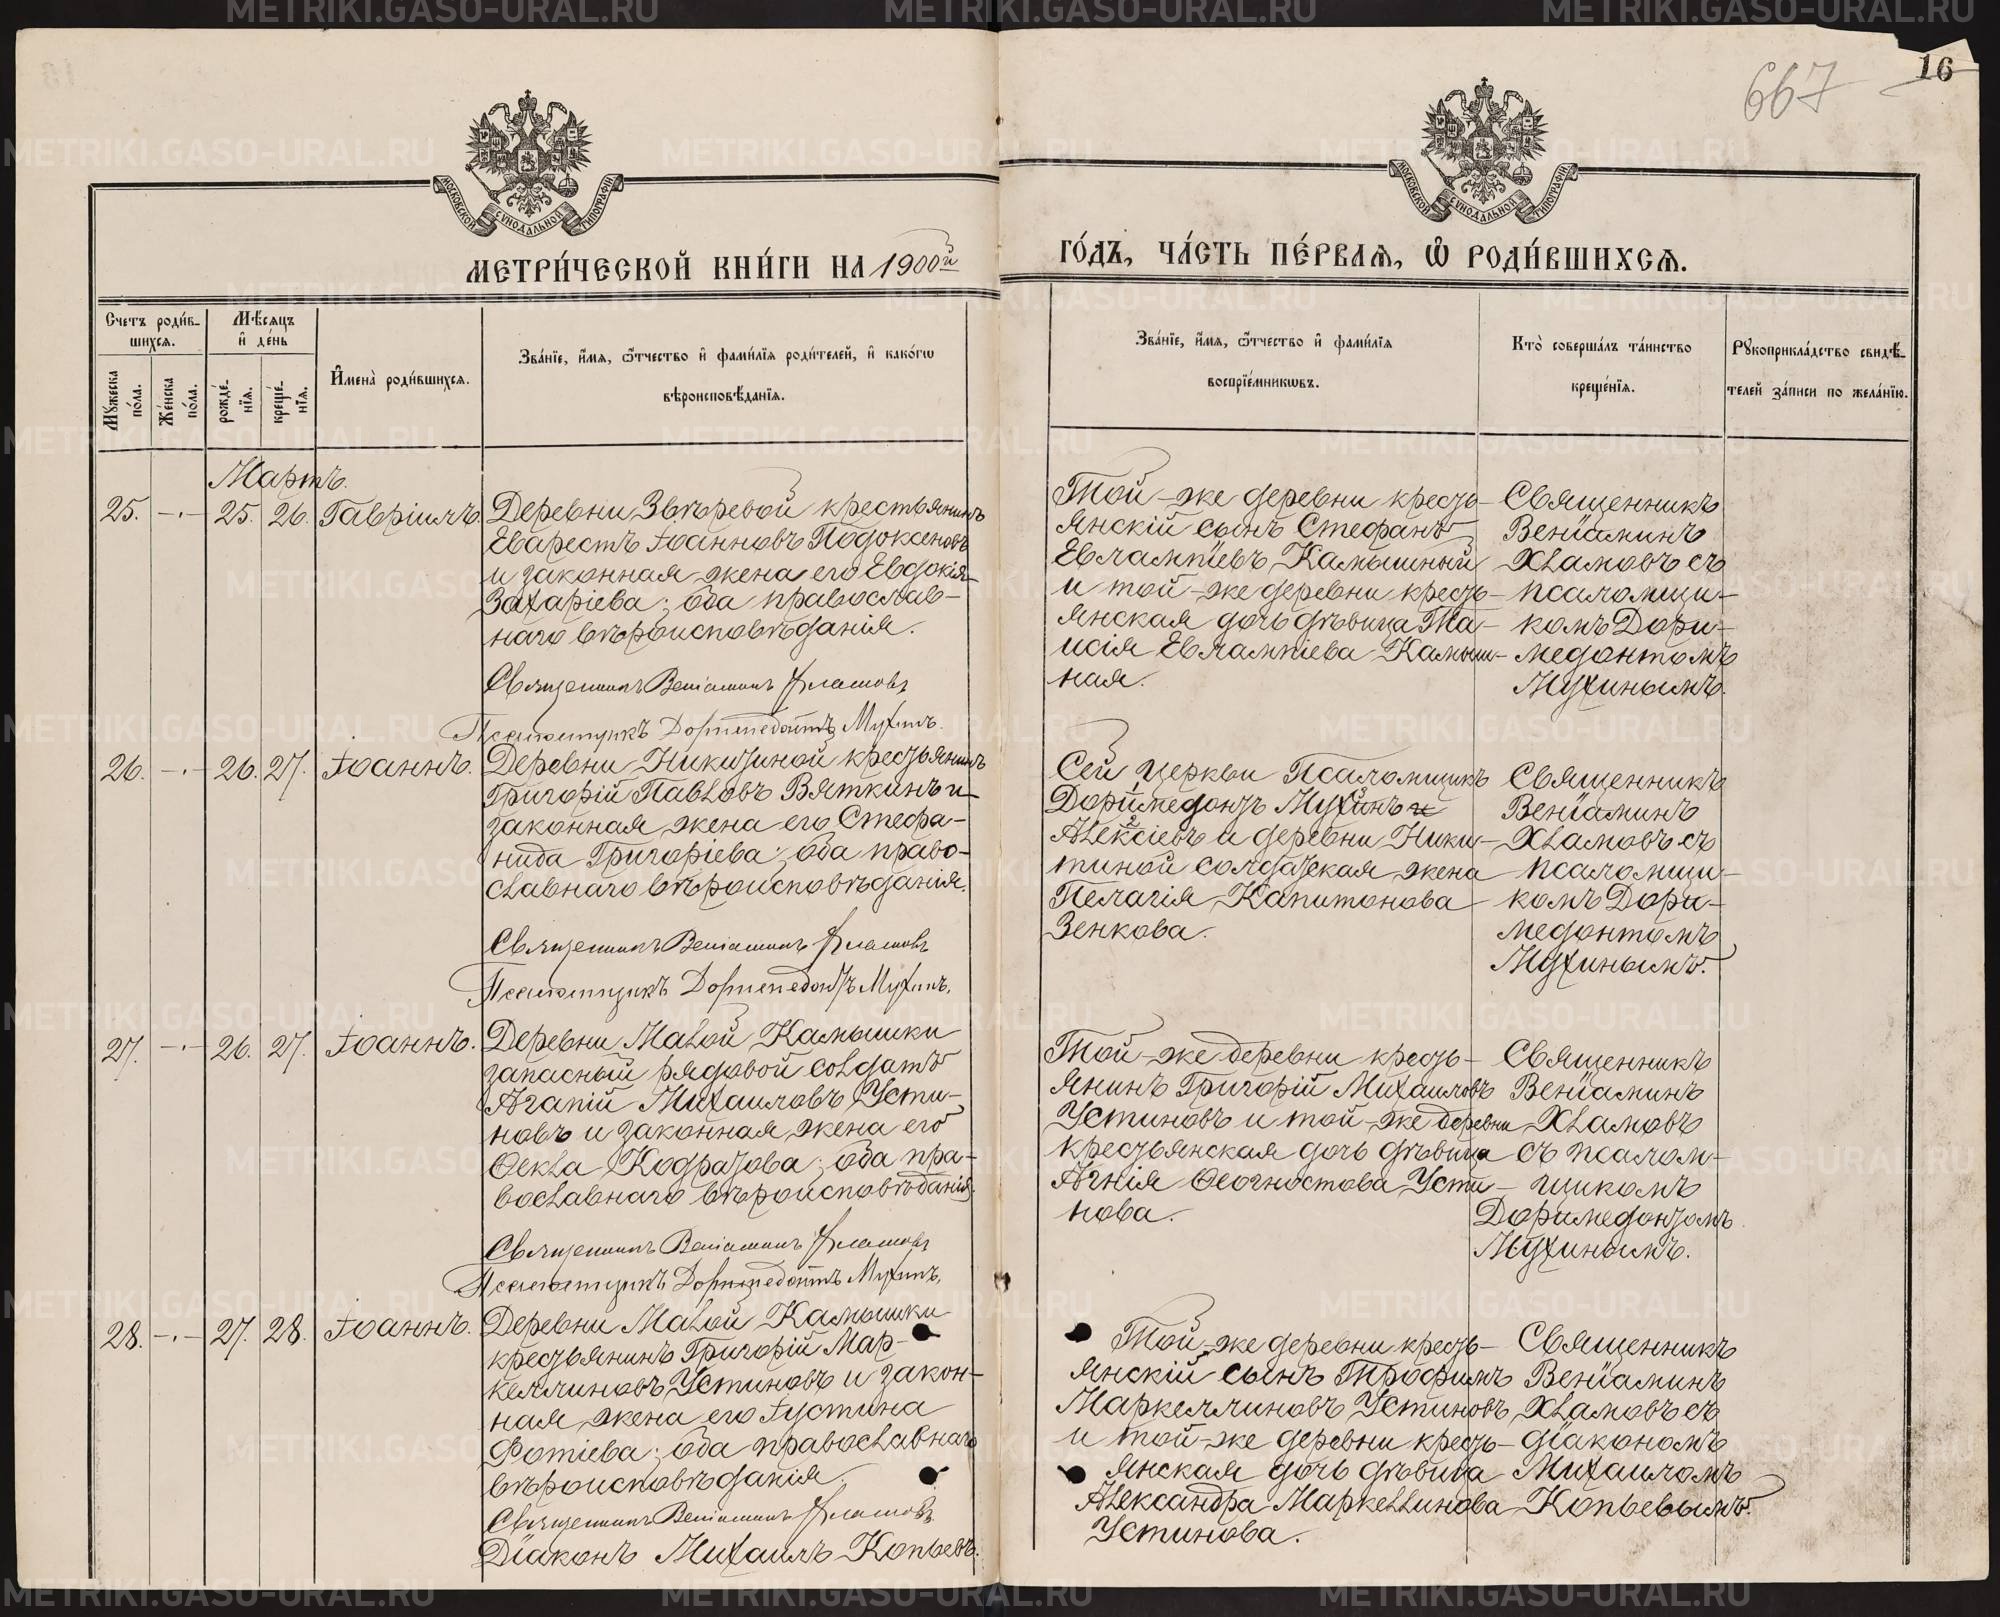 667
16
МОСКОВСКОЙ СѴНОДАЛЬНОЙ ТИПОГРАФІИ
МОСКОВСКОЙ СѴНОДАЛЬНОЙ ТИПОГРАФІИ
МЕТРИ́ЧЕСКОЙ КНИ́ГИ НА 1900й
ГО́ДЪ, ЧА́СТЬ ПЕ́РВАѦ, Ѽ РОДИ́ВШИХСѦ.
Счетъ роди́в-
шихсѧ.
Мѣ́сѧцъ
и҆ де́нь
Мꙋ́жеска
по́ла.
Же́нска
по́ла.
рожде́-
нїѧ.
креще́-
нїѧ.
И҆мена̀ роди́вшихсѧ.
Зва́нїе, и҆́мѧ, ѻ҆́тчество и҆ фами́лїѧ роди́телей, и҆ како́гѡ
вѣроисповѣ́данїѧ.
Зва́нїе, и҆́мѧ, ѻ҆́тчество и҆ фами́лїѧ
воспрїе́мникѡвъ.
Кто̀ соверша́лъ та́инство
креще́нїѧ.
Рꙋкоприкла́дство свидѣ́-
телей за́писи по жела́нїю.
Мартъ.
25. -·- 25. 26. Гавріилъ.
Деревни Звѣревой крестьянинъ
Еварестъ Іоанновъ Подоксеновъ
и законная жена его Евдокія
Захаріева; оба православ-
наго вѣроисповѣданія.
Священникъ Веніаминъ Хламовъ
Псаломщикъ Доримедонтъ Мухинъ.
Той-же деревни кресть-
янскій сынъ Стефанъ
Евлампіевъ Камышный
и той-же деревни кресть-
янская дочь дѣвица Та-
исія Евлампіева Камыш-
ная.
Священникъ
Веніаминъ
Хламовъ съ
псаломщи-
комъ Дори-
медонтомъ
Мухинымъ.
26. -·- 26. 27. Іоаннъ.
Деревни Никитиной крестьянинъ
Григорій Павловъ Вяткинъ и
законная жена его Стефа-
нида Григоріева; оба право-
славнаго вѣроисповѣданія.
Священникъ Веніаминъ Хламовъ
Псаломщикъ Доримедонтъ Мухинъ.
Сей церкви Псаломщикъ
Доримедонтъ Мухинъ и
Алексіевъ и деревни Ники-
тиной солдатская жена
Пелагія Капитонова
Зенкова.
Священникъ
Веніаминъ
Хламовъ съ
псаломщи-
комъ Дори-
медонтомъ
Мухинымъ.
27. -·- 26. 27. Іоаннъ.
Деревни Малой Камышки
запасный рядовой солдатъ
Агапій Михаиловъ Усти-
новъ и законная жена его
Ѳекла Кодратова; оба пра-
вославнаго вѣроисповѣданія.
Священникъ Веніаминъ Хламовъ
Псаломщикъ Доримедонтъ Мухинъ.
Той-же деревни кресть-
янинъ Григорій Михаиловъ
Устиновъ и той-же деревни
крестьянская дочь дѣвица
Агнія Ѳеогностова Усти-
нова.
Священникъ
Веніаминъ
Хламовъ
съ псалом-
щикомъ
Доримедонтомъ
Мухинымъ.
28. -·- 27. 28. Іоаннъ.
Деревни Малой Камышки
крестьянинъ Григорій Мар-
келлиновъ Устиновъ и закон-
ная жена его Іустина
Фотіева; оба православнаго
вѣроисповѣданія.
Священникъ Веніаминъ Хламовъ
Діаконъ Михаилъ Копьевъ.
Той-же деревни кресть-
янскій сынъ Трофимъ
Маркеллиновъ Устиновъ
и той-же деревни кресть-
янская дочь дѣвица
Александра Маркеллинова
Устинова.
Священникъ
Веніаминъ
Хламовъ съ
діакономъ
Михаиломъ
Копьевымъ.
METRIKI.GASO-URAL.RU